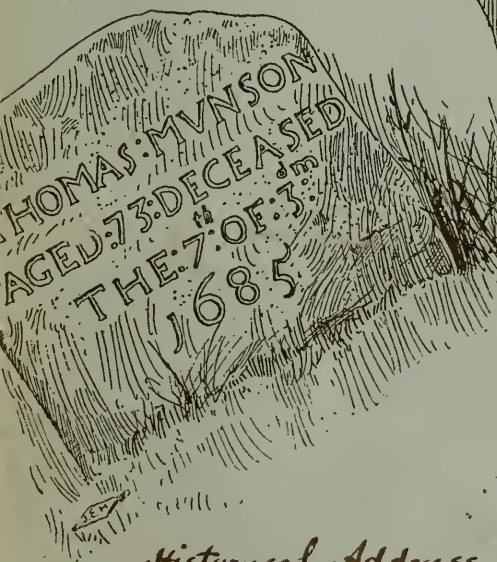 THOMAS:MVNSON
AGED:73:DECEASED
THE:7th:OF:3:dm
1685
J.E.M
Historical Address